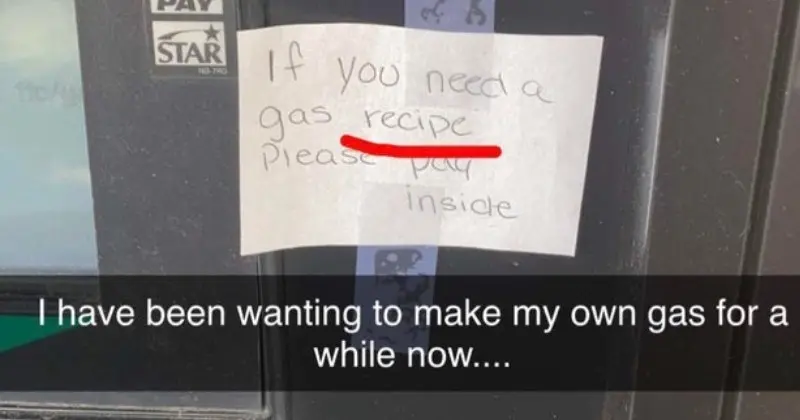 PAY
STAR
If you need a
gas recipe
Please pay
inside
I have been wanting to make my own gas for a
while now....